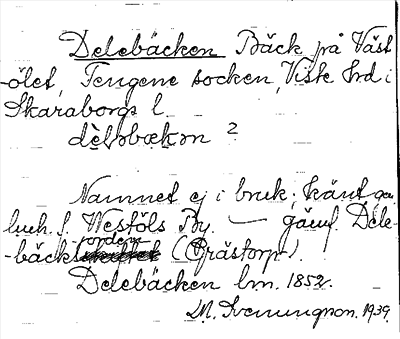 Delebäcken Bäck på Väst
-ölet, Tengene socken, Viste hrd i
Skaraborgs l.
dèləbækən 2
Namnet ej i bruk; känt gm
luh. f. Westöls By. — jämf. Dele-
jordem
-bäcks (Grästorp).
Delebäcken lm. 1852.
M. Svenungson. 1939.